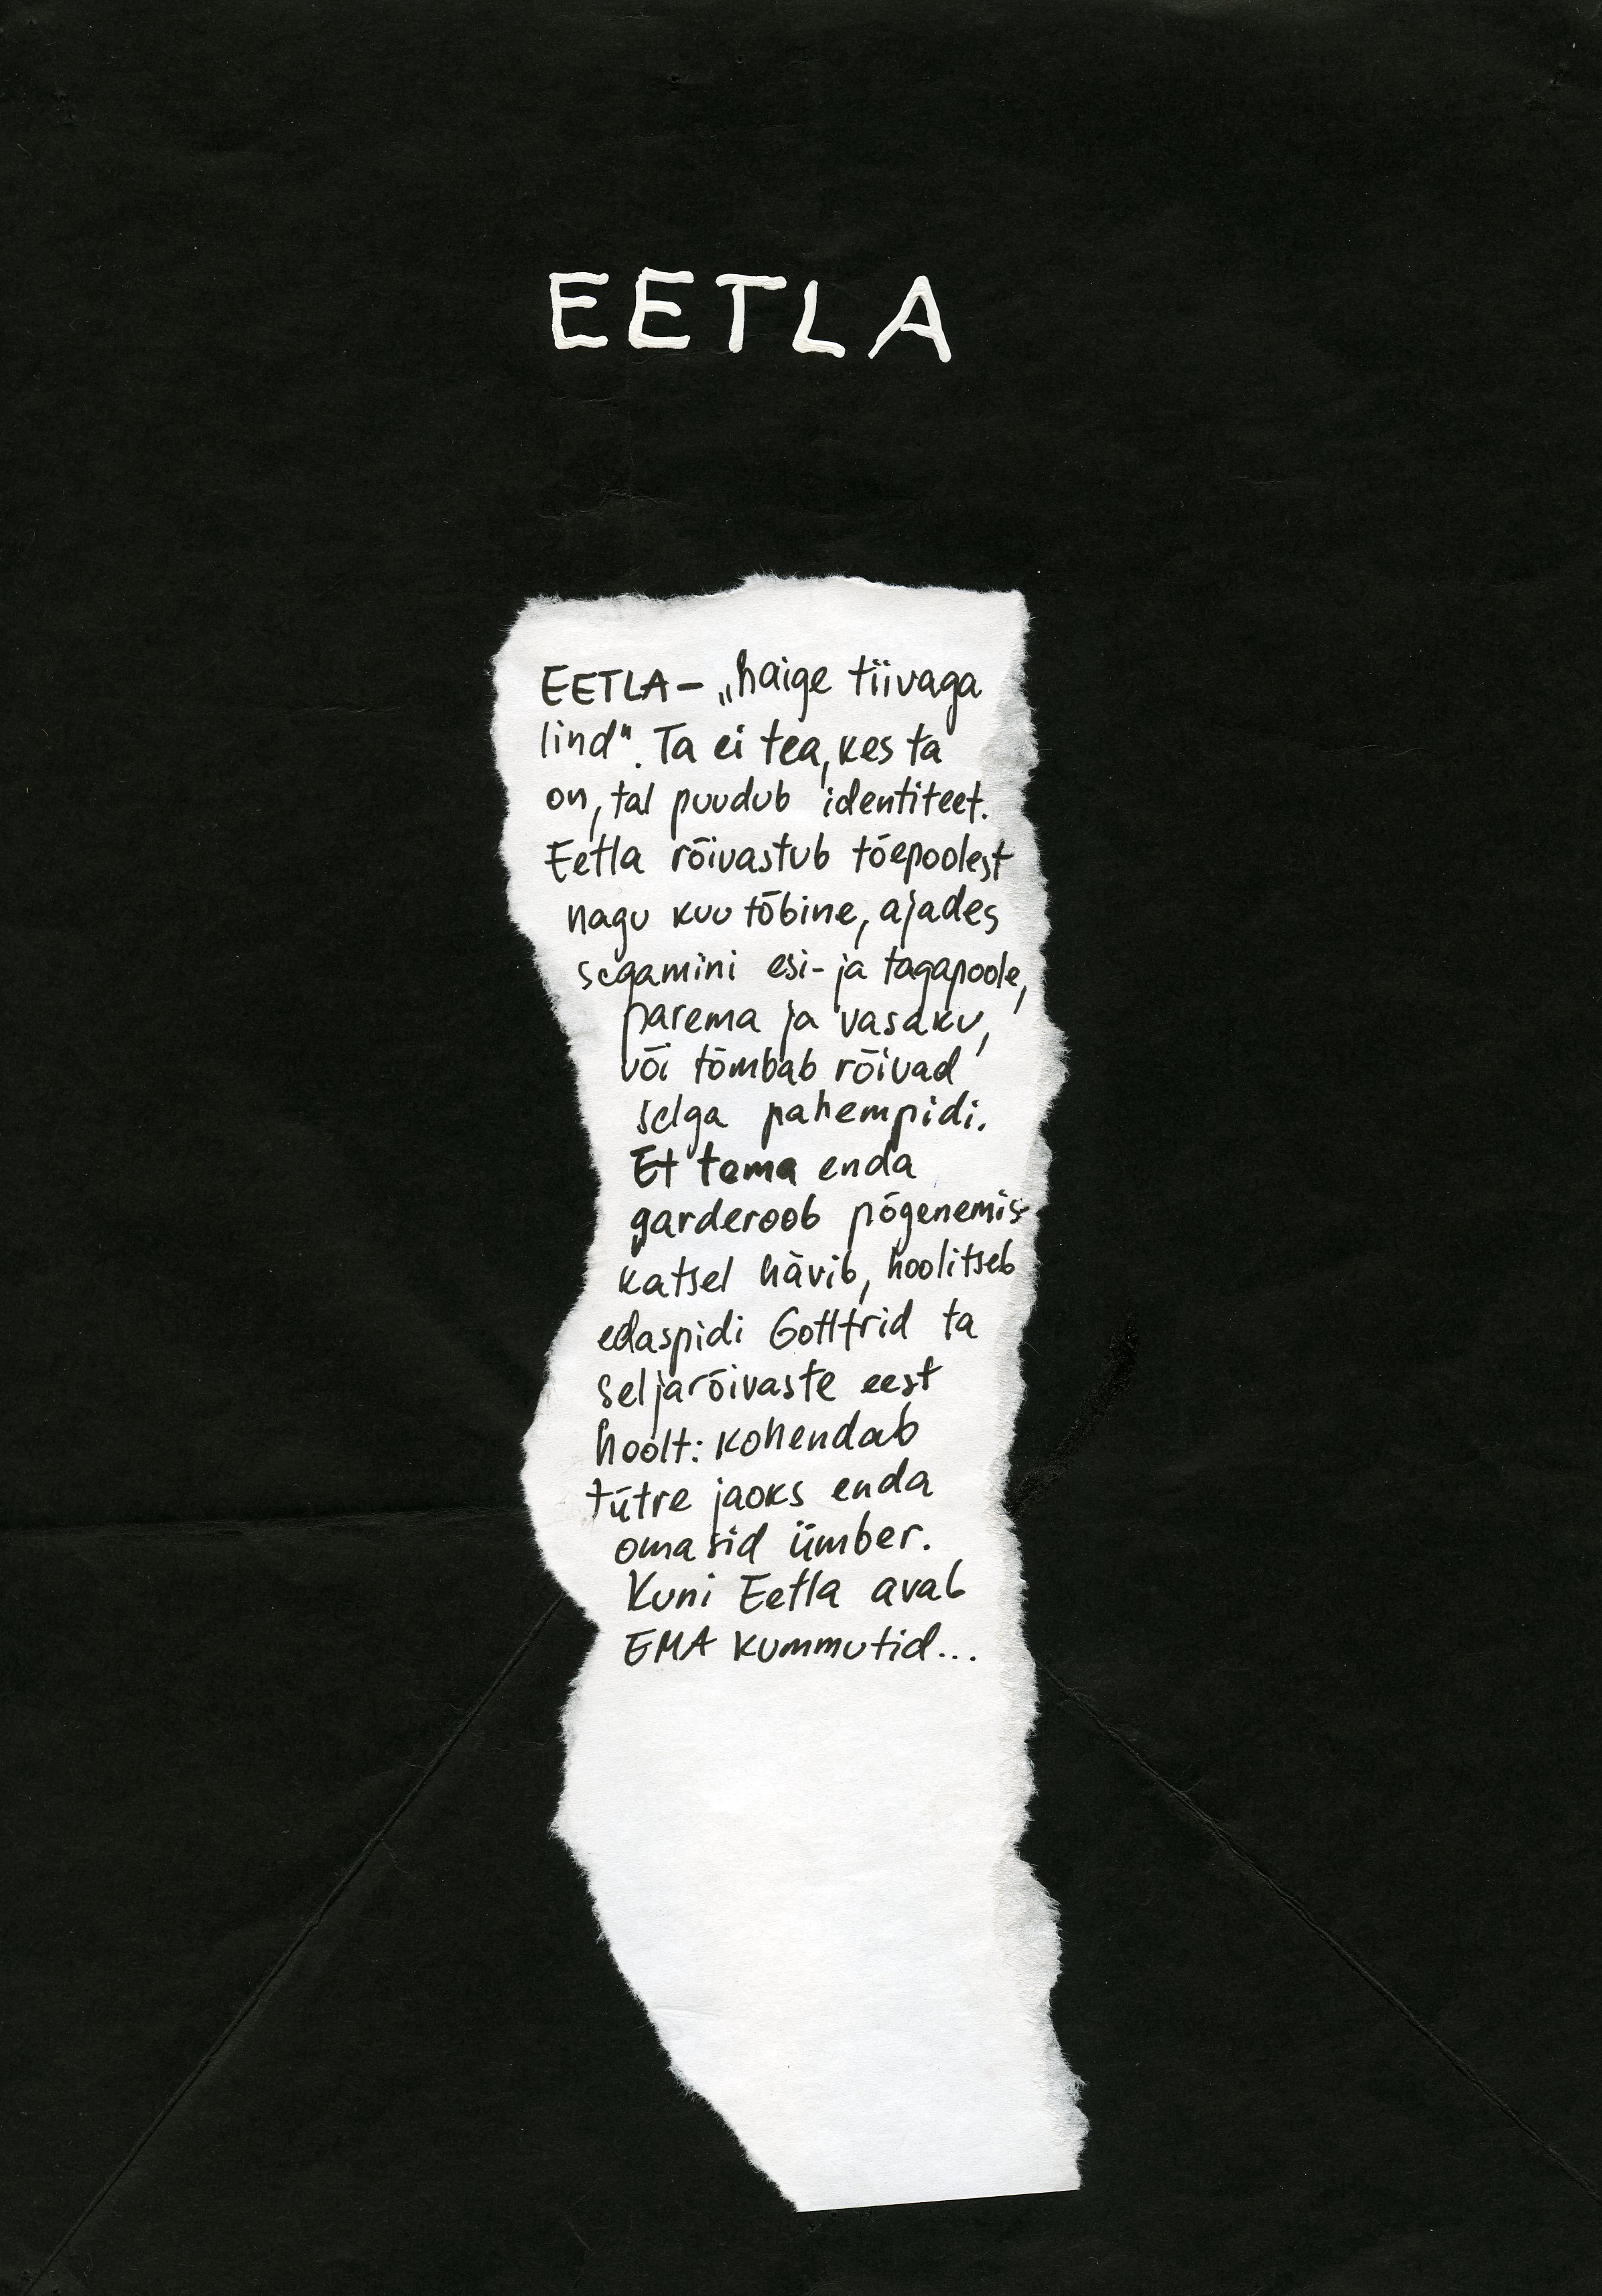 EETLA
EETLA – „haige tiivaga
lind". Ta ei tea, kes ta
on, tal puudub identiteet.
Eetla rõivastub tõepoolest
nagu kuutõbine, ajades
segamini esi- ja tagapoole,
parema ja vasaku,
või tõmbab rõivad
selga pahempidi.
Et tema enda
garderoob põgenemis-
katsel hävib, hoolitseb
edaspidi Gottfrid ta
seljarõivaste eest
hoolt: kohendab
tütre jaoks enda
omasid ümber.
Kuni Eetla avab
EMA kummutid...